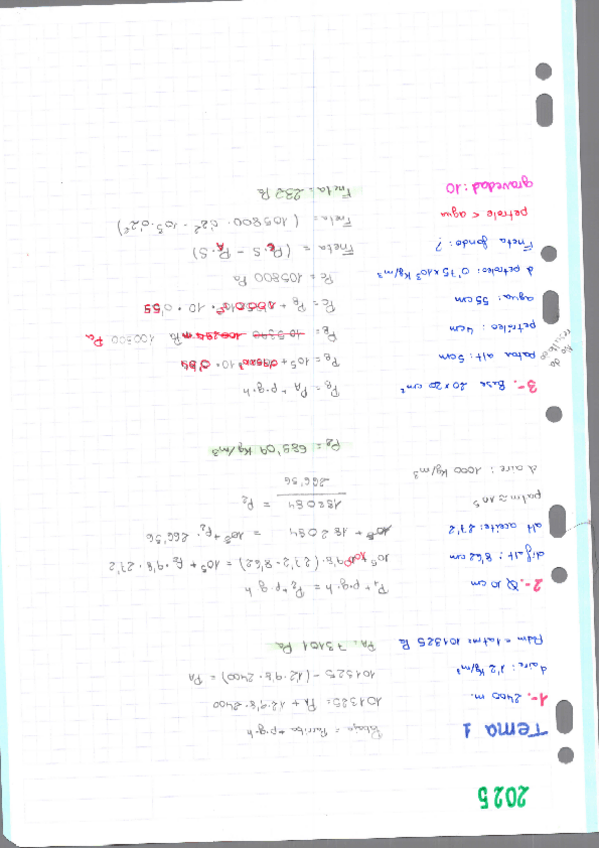 2025
Tema 1
1-. 2400 m.
d aire: 1'2 Kg/m³
Patm = 1atm: 101325 Pa
Pabajo = Parriba + p·g·h
101325 = PA + 1'2·9'8·2400
101325 - (1'2·9'8·2400) = PA
PA: 73101 Pa
2-. Ø 10 cm
dif alt: 8'62 cm
alt aceite: 27'2
patm ≈ 10⁵
d aire: 1000 Kg/m³
P1 + p·g·h = P2 + p·g·h
10⁵ + 1000·9'8·(27'2-8'62) = 10⁵ + P2·9'8·27'2
10⁵ + 182084 = 10⁵ + P2·266'56
182084
266'56
= P2
P2 = 683'09 Kg/m³
3-. Base 20x20 cm²
pator alt: 5cm
petróleo: 4cm
agua: 55 cm
d petroleo: 0'75x10³ Kg/m³
Fneta fondo: ?
petrole < agua
gravedad: 10
PB = PA + p·g·h
PB = 100800 Pa
PC = 105800 Pa
Fneta = (PC·S - PA·S)
Fneta = (105800·0'2² - 10⁵·0'2²)
Fneta: 232 N